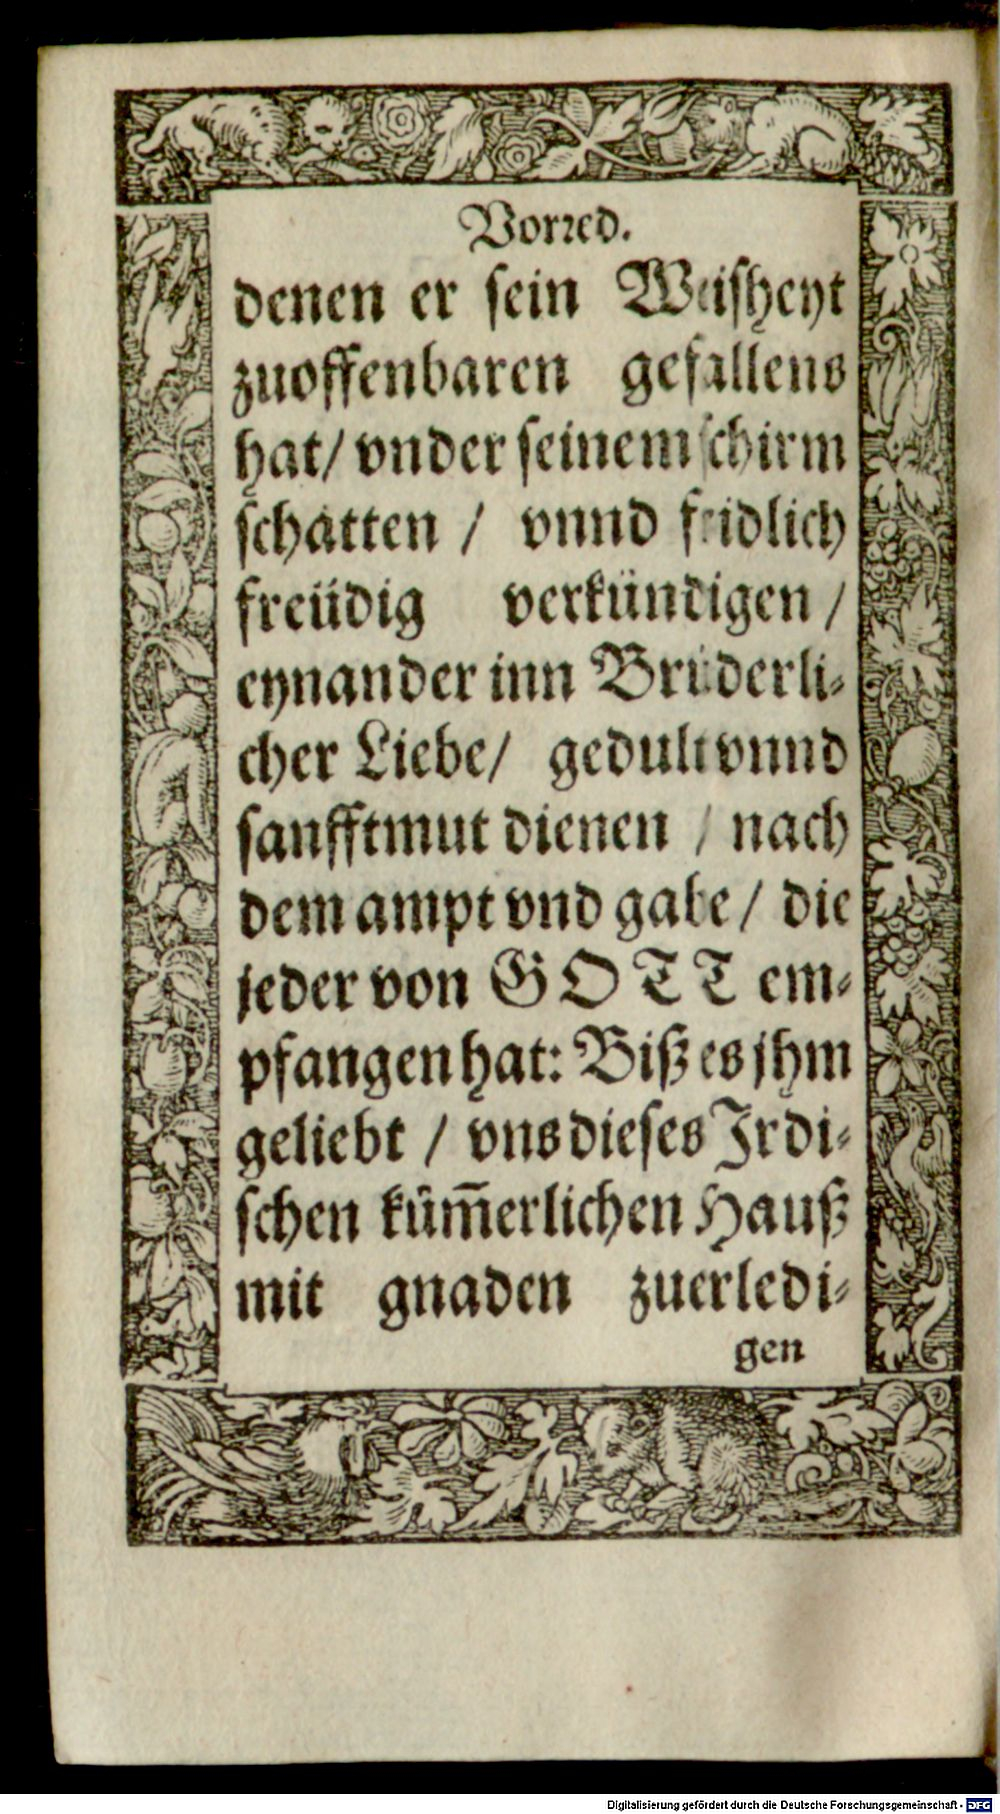 Vorred.
denen er sein Weisheyt
zuoffenbaren gefallens
hat/ vnder seinem schirm
schatten / vnnd fridlich
freüdig verkündigen /
eynander inn Brüderli-
cher Liebe/ gedult vnnd
sanfftmut dienen / nach
dem ampt vnd gabe / die
jeder von GOTT em-
pfangen hat: Biß es jhm
geliebt / vns dieses Jrdi-
schen küm̃erlichen Hauß
mit gnaden zuerledi-
gen
Digitalisierung gefördert durch die Deutsche Forschungsgemeinschaft - DFG